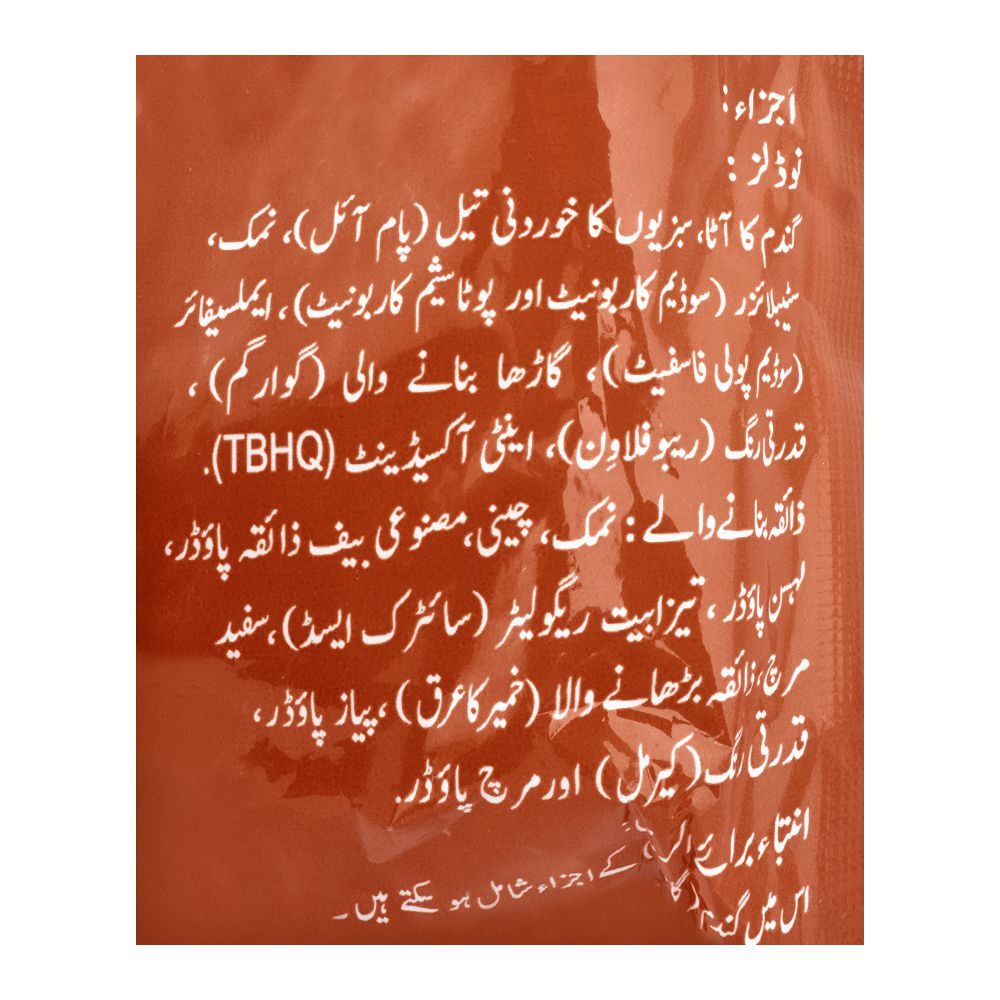 اجزاء:
نوڈلز:
گندم کا آٹا، سبزیوں کا خوردنی تیل (پام آئل)، نمک،
سٹیبلائزر (سوڈیم کاربونیٹ اور پوٹاسئیم کاربونیٹ)، ایملسیفائر
(سوڈیم پولی فاسفیٹ)، گاڑھا بنانے والی (گوار گم)،
قدرتی رنگ (ریبوفلاوِن)، اینٹی آکسیڈینٹ (TBHQ).
ذائقہ بنانے والے: نمک، چینی، مصنوعی بیف ذائقہ پاؤڈر،
لہسن پاؤڈر، تیزابیت ریگولیٹر (سائٹرک ایسڈ)، سفید
مرچ، ذائقہ بڑھانے والا (خمیر کا عرق)، پیاز پاؤڈر،
قدرتی رنگ (کیرمل) اور مرچ پاؤڈر.
انتباء برائے
اس میں کے اجزاء شامل ہو سکتے ہیں۔